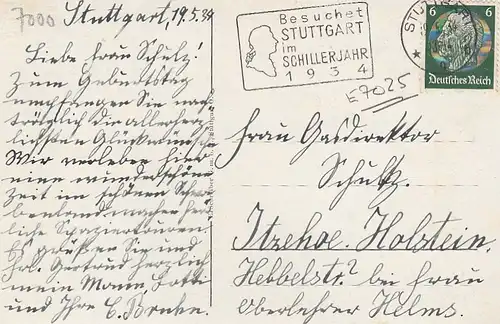 7000 Stuttgart, 19.5.34
Liebe Frau Schulz!
Zum Geburtstag
empfangen Sie nach-
träglich die allerherz-
lichsten Glückwünsche.
Wir verleben hier
eine wunderschöne
Zeit im schönen Schwa-
benland machen herr-
liche Spaziertouren.
Es grüßen Sie und
Frl. Gertrud herzlich
mein Mann, Lotti
und Ihre E.
Besuchet
STUTTGART
im
SCHILLERJAHR
1934
STUTTGART
6 6
Deutsches Reich
E7025
Frau Gasdirektor
Schultz.
Itzehoe-Holstein.
Hebbelstr? bei Frau
Oberlehrer Helms.